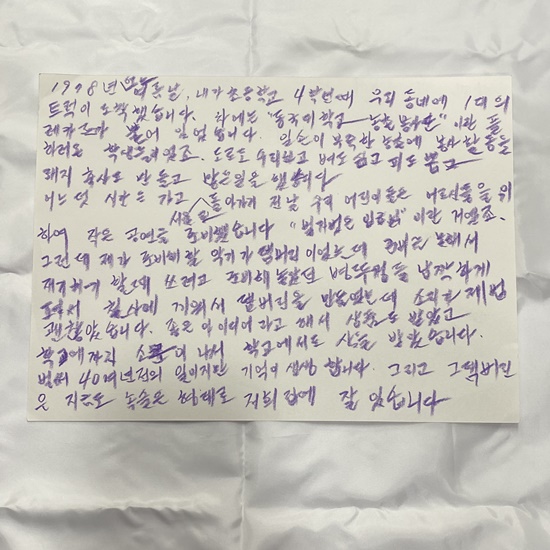 1978년 어느날, 내가 초등학교 4학년때 우리 동네에 1대의
트럭이 도착했습니다. 차에는 "동국대학교 농촌봉사단" 이란 플
래카드가 붙어 있었습니다. 일손이 부족한 농촌에 봉사활동을
하러온 학생들이었죠. 도로도 수리하고 벼도 심고 피도 뽑고
돼지 축사도 만들고 많은일을 했습니다
어느덧 시간은 가고 서울로 돌아가기 전날 우리 어린이들은 어르신들을 위
하여 작은 공연을 준비했습니다 "빈거법은 임금님" 이란 거였죠.
그런데 제가 준비해야할 악기가 탬버린 이었는데 준비를 못해서
재구하기 할 때 쓰려고 준비해 놓았던 병뚜껑을 납작하게
펴서 철사에 끼워서 탬버린을 만들었는데 소리가 제법
괜찮았습니다. 좋은 아이디어라고 해서 상품도 받았고
학교에까지 소문이 나서 학교에서도 상을 받았습니다.
벌써 40여년전의 일이지만 기억이 생생 합니다. 그리고 그탬버린
은 지금도 녹슬은 형태로 저희집에 잘 있습니다